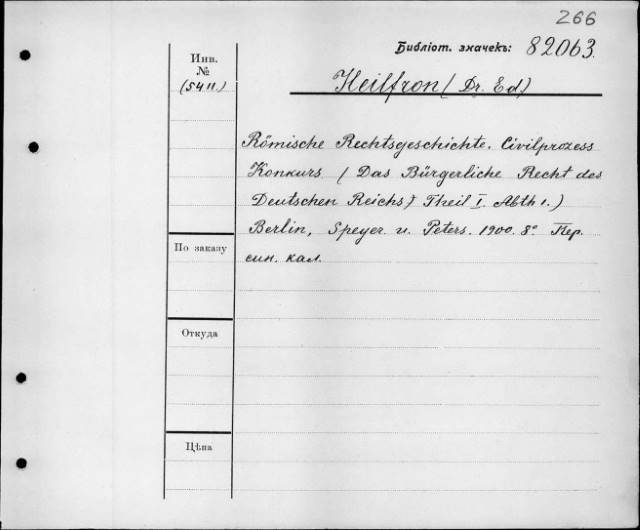 266
Библіот. значекъ: 82063.
Инв.
№
(5411)
Heilfron (Dr. Ed)
Römische Rechtsgeschichte. Civilprozess
Konkurs (Das Bürgerliche Recht des
Deutschen Reichs) Theil I. Abth 1.)
Berlin, Speyer u. Peters. 1900. 8° Пер.
син. кал.
По заказу
Откуда
Цѣна